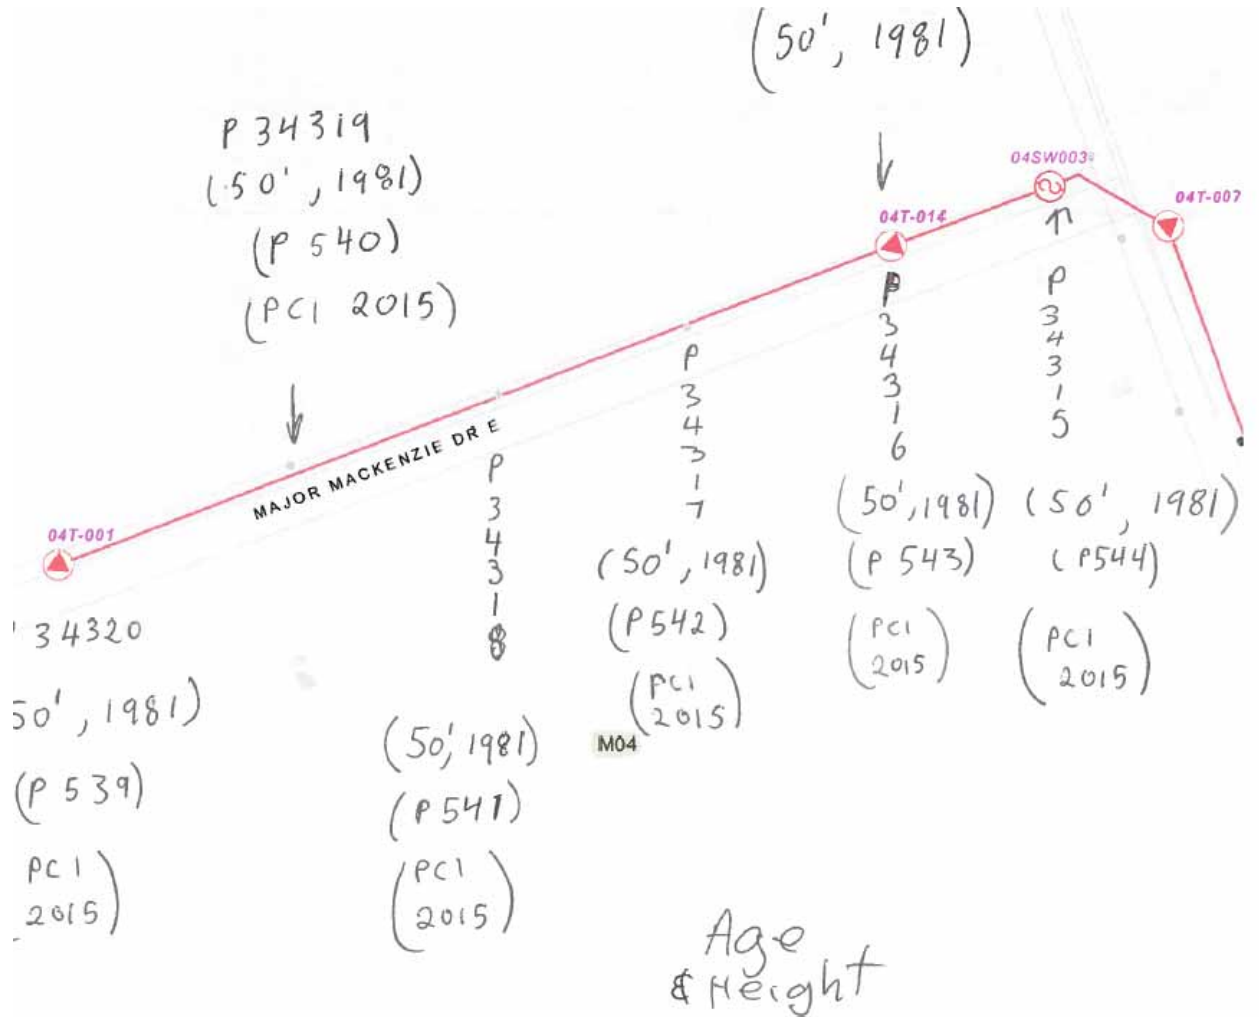 (50', 1981)
P 34319
(50', 1981)
(P 540)
(PCI 2015)
04SW003
04T-007
04T-014
MAJOR MACKENZIE DR E
04T-001
P
3
4
3
1
5
(50', 1981)
(P544)
(PCI
2015)
P
3
4
3
1
6
(50', 1981)
(P 543)
(PCI
2015)
P
3
4
3
1
7
(50', 1981)
(P542)
(PCI
2015)
P
3
4
3
1
8
(50', 1981)
(P 541)
(PCI
2015)
34320
50', 1981)
(P 539)
PCI
2015)
M04
Age
& Height